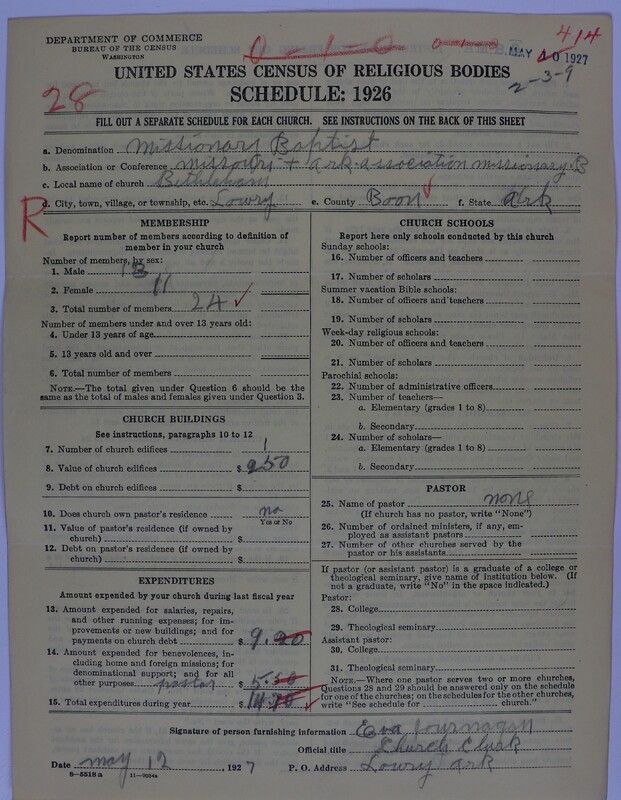 414
DEPARTMENT OF COMMERCE
BUREAU OF THE CENSUS
WASHINGTON
0-1-0 0-1-0
MAY 10 1927
2-3-9
28
UNITED STATES CENSUS OF RELIGIOUS BODIES
SCHEDULE: 1926
FILL OUT A SEPARATE SCHEDULE FOR EACH CHURCH. SEE INSTRUCTIONS ON THE BACK OF THIS SHEET
a. Denomination Missionary Baptist
b. Association or Conference Missouri + Ark. association missionary. B
c. Local name of church Bethleham
d. City, town, village, or township, etc. Lowry e. County Boon f. State Ark
R
MEMBERSHIP
Report number of members according to definition of
member in your church
Number of members, by sex:
1. Male 13
2. Female 11
3. Total number of members 24
Number of members under and over 13 years old:
4. Under 13 years of age
5. 13 years old and over
6. Total number of members
NOTE.—The total given under Question 6 should be the
same as the total of males and females given under Question 3.
CHURCH BUILDINGS
See instructions, paragraphs 10 to 12
7. Number of church edifices 1
8. Value of church edifices $ 250
9. Debt on church edifices $
10. Does church own pastor's residence no
Yes or No
11. Value of pastor's residence (if owned by
church) $
12. Debt on pastor's residence (if owned by
church) $
EXPENDITURES
Amount expended by your church during last fiscal year
13. Amount expended for salaries, repairs,
and other running expenses; for im-
provements or new buildings; and for
payments on church debt $ 9.20
14. Amount expended for benevolences, in-
cluding home and foreign missions; for
denominational support; and for all
other purposes pastor $ 5.50
15. Total expenditures during year $ 14.70
CHURCH SCHOOLS
Report here only schools conducted by this church
Sunday schools:
16. Number of officers and teachers
17. Number of scholars
Summer vacation Bible schools:
18. Number of officers and teachers
19. Number of scholars
Week-day religious schools:
20. Number of officers and teachers
21. Number of scholars
Parochial schools:
22. Number of administrative officers
23. Number of teachers—
a. Elementary (grades 1 to 8)
b. Secondary
24. Number of scholars—
a. Elementary (grades 1 to 8)
b. Secondary
PASTOR
25. Name of pastor none
(If church has no pastor, write "None")
26. Number of ordained ministers, if any, em-
ployed as assistant pastors
27. Number of other churches served by the
pastor or his assistants
If pastor (or assistant pastor) is a graduate of a college or
theological seminary, give name of institution below. (If
not a graduate, write "No" in the space indicated.)
Pastor:
28. College
29. Theological seminary
Assistant pastor:
30. College
31. Theological seminary
NOTE.—Where one pastor serves two or more churches,
Questions 28 and 29 should be answered only on the schedule
for one of the churches; on the schedules for the other churches,
write "See schedule for church."
Signature of person furnishing information Eva Journagan
Official title Church Clurk
Date may 12, 1927 P. O. Address Lowry Ark
8—5518 a